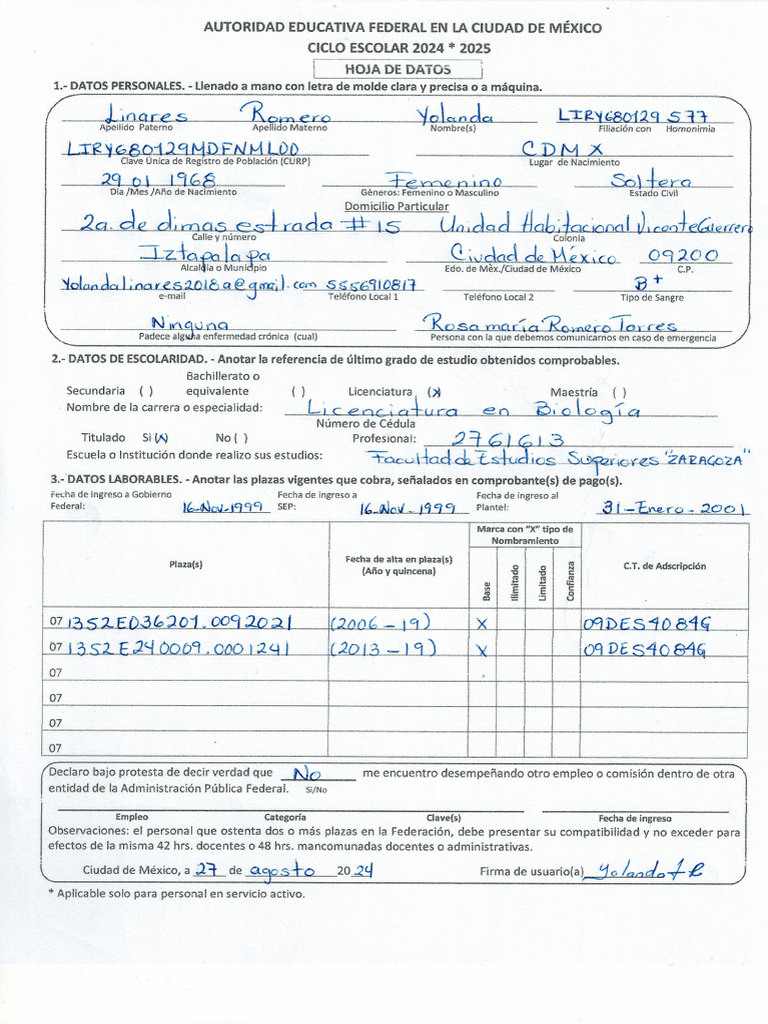 AUTORIDAD EDUCATIVA FEDERAL EN LA CIUDAD DE MÉXICO
CICLO ESCOLAR 2024 * 2025
HOJA DE DATOS
1.- DATOS PERSONALES. - Llenado a mano con letra de molde clara y precisa o a máquina.
Linares Romero Yolanda LIRY680129 577
Apellido Paterno Apellido Materno Nombre(s) Filiación con Homonimia
LIRY680129MDFNML00 CDMX
Clave Única de Registro de Población (CURP) Lugar de Nacimiento
29 01 1968 Femenino Soltera
Dia /Mes /Año de Nacimiento Géneros: Femenino o Masculino Estado Civil
Domicilio Particular
2a. de dimas estrada #15 Unidad Habitacional Vicente Guerrero
Calle y número Colonia
Iztapalapa Ciudad de México 09200
Alcaldía o Municipio Edo. de Mèx./Ciudad de México C.P.
Yolandalinares2018a@gmail.com 5556910817 B+
e-mail Teléfono Local 1 Teléfono Local 2 Tipo de Sangre
Ninguna Rosa maría Romero Torres
Padece alguna enfermedad crónica (cual) Persona con la que debemos comunicarnos en caso de emergencia
2.- DATOS DE ESCOLARIDAD. - Anotar la referencia de último grado de estudio obtenidos comprobables.
Bachillerato o
Secundaria ( ) equivalente ( ) Licenciatura (x) Maestría ( )
Nombre de la carrera o especialidad: Licenciatura en Biología
Número de Cédula
Titulado Si (x) No ( ) Profesional: 2761613
Escuela o Institución donde realizo sus estudios: Facultad de Estudios Superiores "ZARAGOZA"
3.- DATOS LABORALES. - Anotar las plazas vigentes que cobra, señalados en comprobante(s) de pago(s).
Fecha de ingreso a Gobierno Fecha de ingreso a Fecha de ingreso al
Federal: 16-Nov-1999 SEP: 16-Nov-1999 Plantel: 31-Enero-2001
Marca con "X" tipo de
Nombramiento
Plaza(s) Fecha de alta en plaza(s) C.T. de Adscripción
(Año y quincena)
Base Ilimitado Limitado Confianza
07 1352E036201.0092021 (2006-19) X 09DES4084G
07 1352E240009.0001241 (2013-19) X 09DES4084G
07
07
07
07
Declaro bajo protesta de decir verdad que No me encuentro desempeñando otro empleo o comisión dentro de otra
entidad de la Administración Pública Federal. Si/No
Empleo Categoría Clave(s) Fecha de ingreso
Observaciones: el personal que ostenta dos o más plazas en la Federación, debe presentar su compatibilidad y no exceder para
efectos de la misma 42 hrs. docentes o 48 hrs. mancomunadas docentes o administrativas.
Ciudad de México, a 27 de agosto 2024 Firma de usuario(a) Yolanda LR
* Aplicable solo para personal en servicio activo.